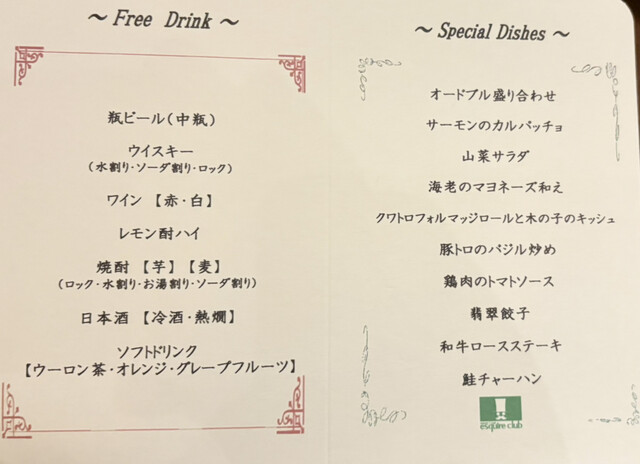 ~ Free Drink ~
瓶ビール(中瓶)
ウイスキー
(水割り・ソーダ割り・ロック)
ワイン 【赤・白】
レモン酎ハイ
焼酎 【芋】 【麦】
(ロック・水割り・お湯割り・ソーダ割り)
日本酒 【冷酒・熱燗】
ソフトドリンク
【ウーロン茶・オレンジ・グレープフルーツ】
~ Special Dishes ~
オードブル盛り合わせ
サーモンのカルパッチョ
山菜サラダ
海老のマヨネーズ和え
クワトロフォルマッジロールと木の子のキッシュ
豚トロのバジル炒め
鶏肉のトマトソース
翡翠餃子
和牛ロースステーキ
鮭チャーハン
esquire club